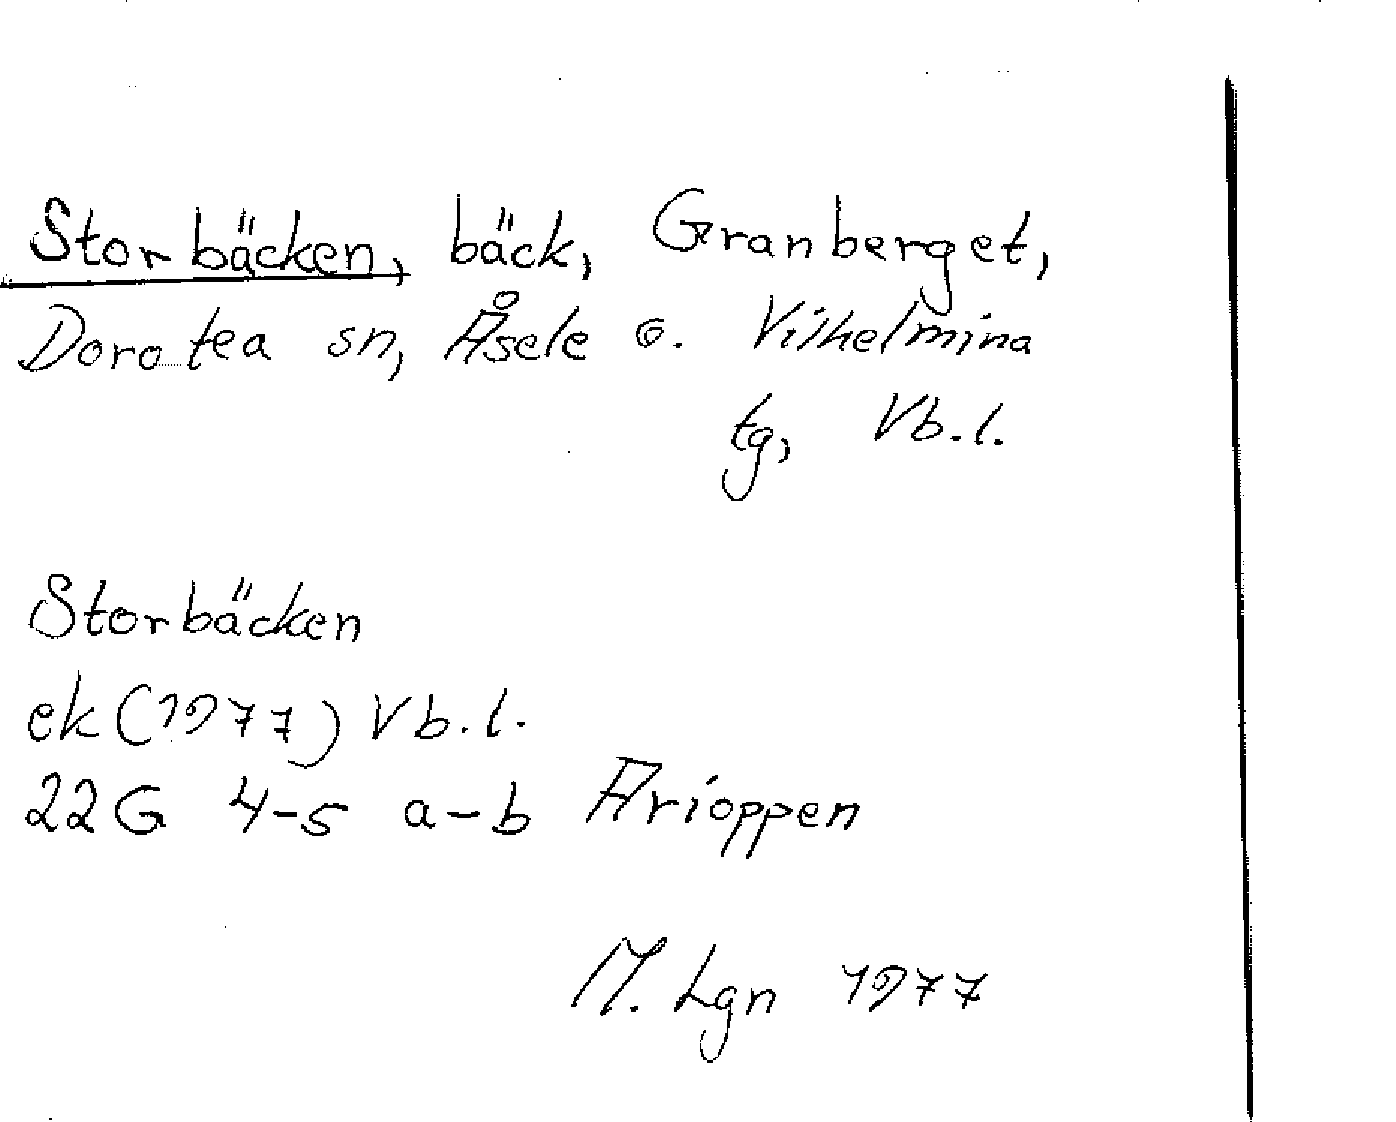 Storbäcken, bäck, Granberget,
Dorotea sn, Åsele o. Vilhelmina
tg, Vb.l.
Storbäcken
ek (1977) Vb.l.
22G 4-5 a-b Arioppen
M. Lgn 1977